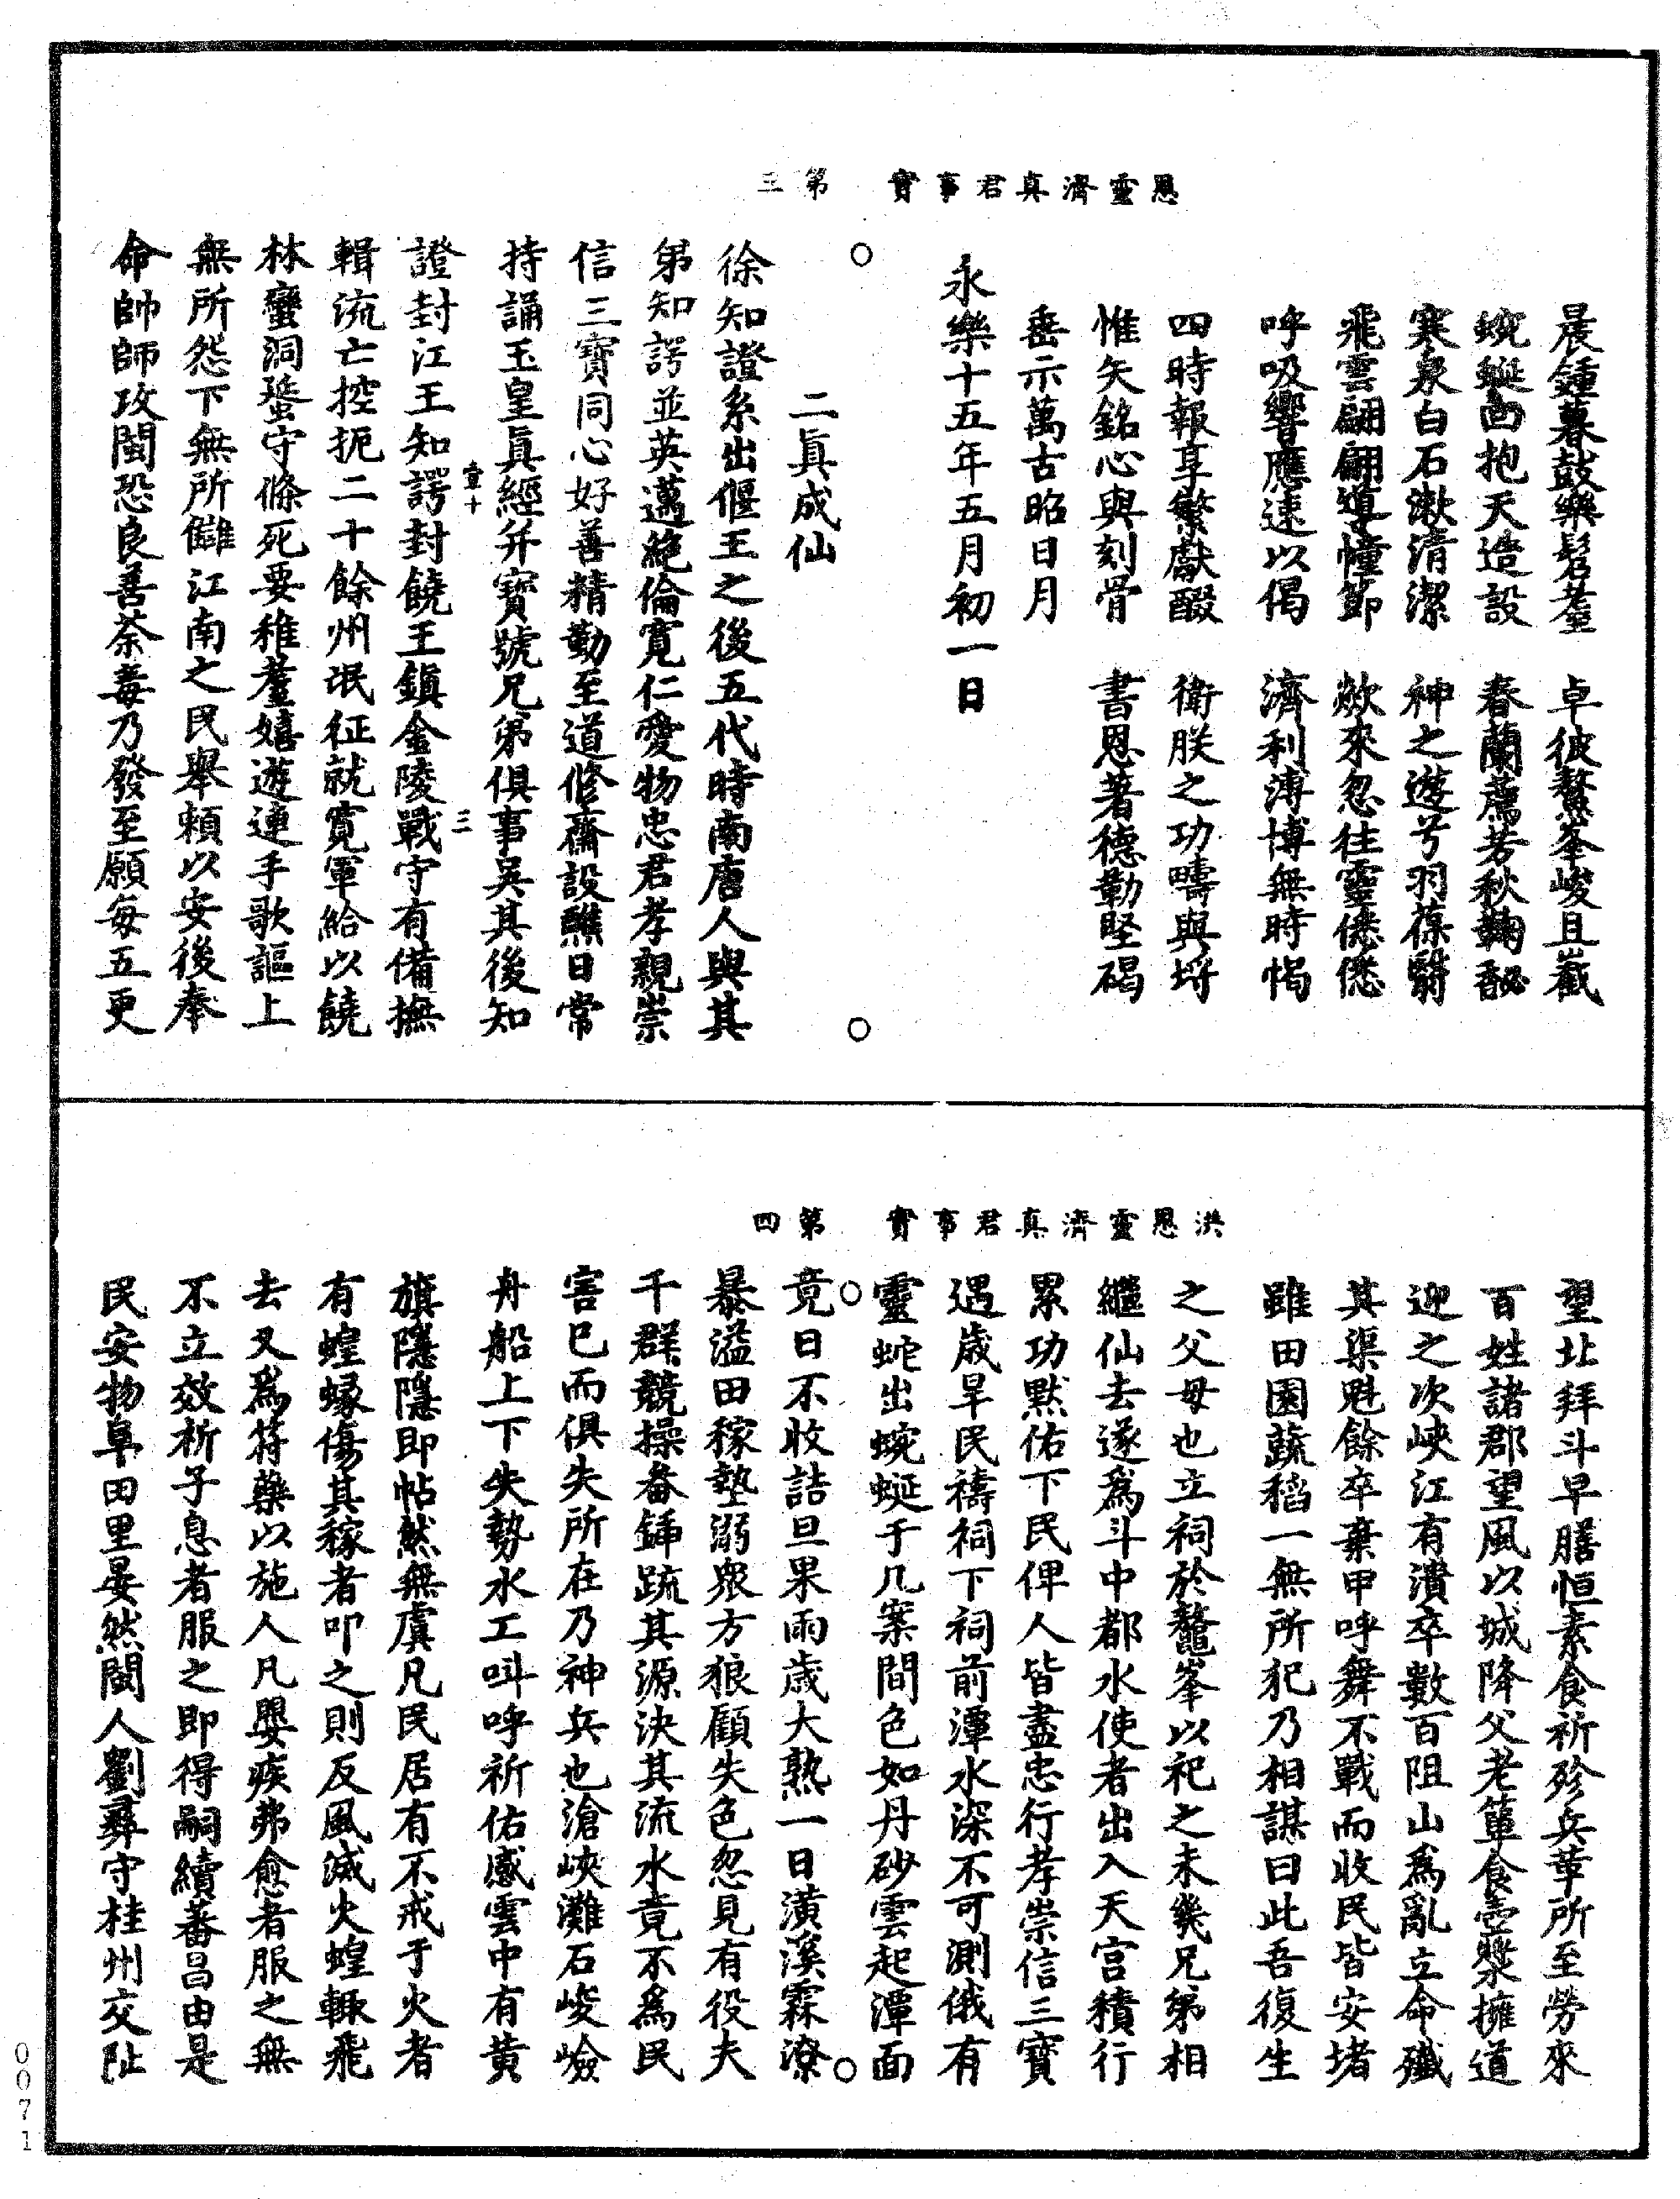 恩靈濟真君事實　第三
晨鍾暮鼓樂髫耋　卓彼鰲峯峻且嶻
蜿蜒回抱天造設　春蘭薦芳秋鞠馝
寒泉白石漱清潔　神之遊兮羽葆翳
飛雲翩翩導幢節　歘來忽往靈僊僊
呼吸響應速以偈　濟利溥博無時愒
四時報享繁獻醊　衛朕之功疇與埒
惟矢銘心與刻骨　書恩著德勒堅碣
垂示萬古昭日月
永樂十五年五月初一日
二眞成仙
徐知證系出偃王之後五代時南唐人與其
弟知諤並英邁絶倫寛仁愛物忠君孝親崇
信三寶同心好善精勤至道修齋設醮日常
持誦玉皇眞經并寶號兄弟俱事吳其後知
壹十　三
證封江王知諤封饒王鎮金陵戰守有備撫
輯流亡控扼二十餘州氓征就寛軍給以饒
林蠻洞蜑守條死要稚耋嬉遊連手歌謳上
無所怨下無所讎江南之民舉賴以安後奉
命帥師攻閩恐良善荼毒乃發至願每五更
洪恩靈濟真君事實　第四
望北拜斗早膳恒素食祈殄兵革所至勞來
百姓諸郡望風以城降父老簞食壺漿擁道
迎之次峽江有潰卒數百阻山爲亂立命殲
其渠魁餘卒棄甲呼舞不戰而收民皆安堵
雖田園蔬稻一無所犯乃相謀曰此吾復生
之父母也立祠於鰲峯以祀之未幾兄弟相
繼仙去遂爲斗中都水使者出入天宫積行
累功默佑下民俾人皆盡忠行孝崇信三寶
遇歲旱民禱祠下祠前潭水深不可測俄有
靈蛇出蜿蜒于几案間色如丹砂雲起潭面
竟日不收詰旦果雨歲大熟一日潢溪霖潦
暴溢田稼墊溺衆方狼顧失色忽見有役夫
千群競操畚鍤疏其源決其流水竟不爲民
害已而俱失所在乃神兵也滄峽灘石峻嶮
舟船上下失勢水工呌呼祈佑感雲中有黄
旗隱隱即帖然無虞凡民居有不戒于火者
有蝗蝝傷其稼者叩之則反風滅火蝗輙飛
去又爲符藥以施人凡嬰疾弗愈者服之無
不立效祈子息者服之即得嗣續蕃昌由是
民安物阜田里晏然閩人劉彞守桂州交阯
0071